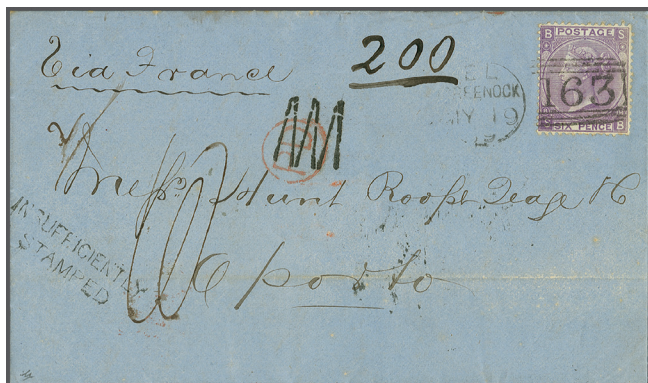 Via France
200
B POSTAGE S
163
S SIX PENCE B
GREENOCK
MY 19
PD
Messrs Hunt Roope Teage & C
Oporto
INSUFFICIENTLY
STAMPED